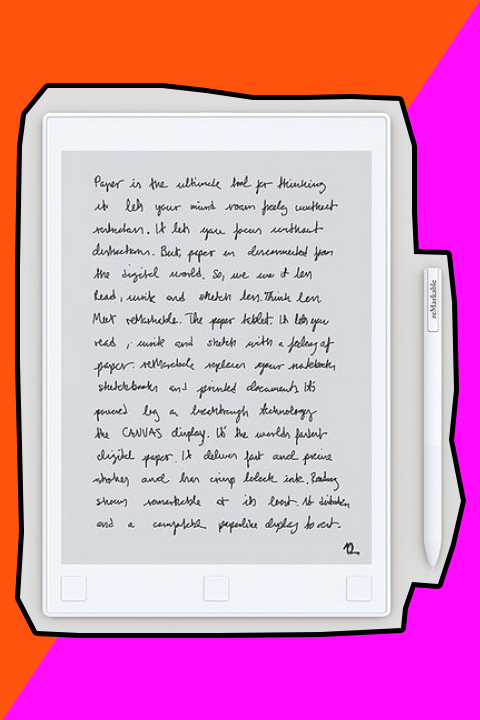 Paper is the ultimate tool for thinking
it lets your mind roam freely without
restrictions. It lets you focus without
distractions. But, paper is disconnected from
the digital world. So, we use it less
Read, write and sketch less. Think less.
Meet reMarkable. The paper tablet. It lets you
read, write and sketch with a feeling of
paper. reMarkable replaces your notebooks
sketchbooks and printed documents. It's
powered by a breakthrough technology
the CANVAS display. It's the worlds fastest
digital paper. It delivers fast and precise
strokes and has crisp black ink. Reading
shows remarkable at its best. No distraction
and a comfortable paperlike display to rest.
12
reMarkable